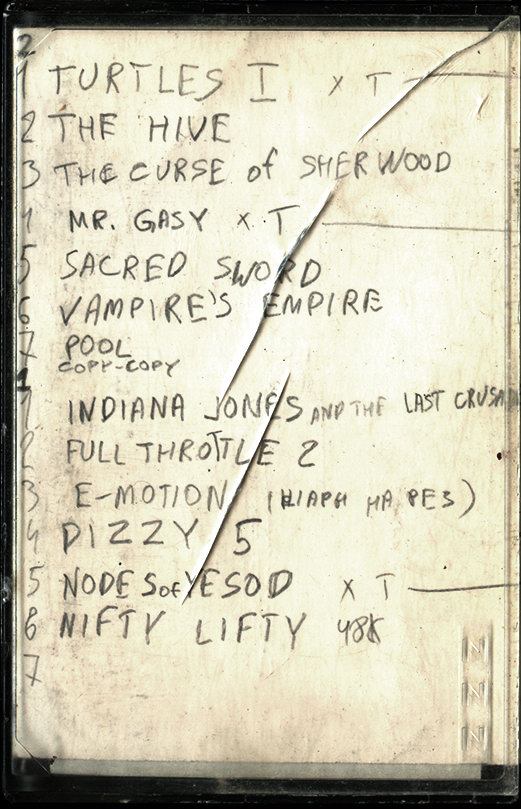 2
1 TURTLES I x T
2 THE HIVE
3 THE CURSE of SHERWOOD
4 MR. GASY x T
5 SACRED SWORD
6 VAMPIRE'S EMPIRE
7 POOL
COPY-COPY
1
1 INDIANA JONES AND THE LAST CRUSA
2 FULL THROTTLE 2
3 E-MOTION
4 DIZZY 5
5 NODES of YESOD x T
6 NIFTY LIFTY 48K
7
N
N
N